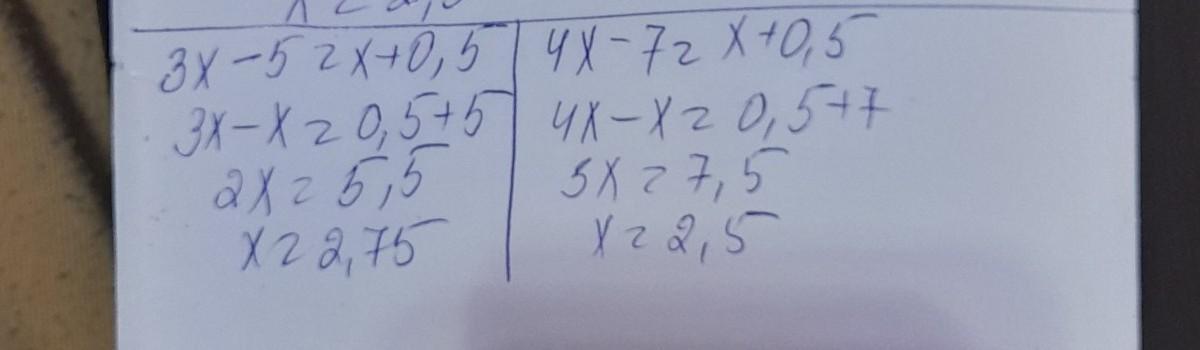 3x-5=x+0,5
3x-x=0,5+5
2x=5,5
x=2,75
4x-7=x+0,5
4x-x=0,5+7
3x=7,5
x=2,5